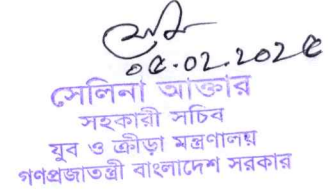 ০৫.০২.২০২৫
সেলিনা আক্তার
সহকারী সচিব
যুব ও ক্রীড়া মন্ত্রণালয়
গণপ্রজাতন্ত্রী বাংলাদেশ সরকার